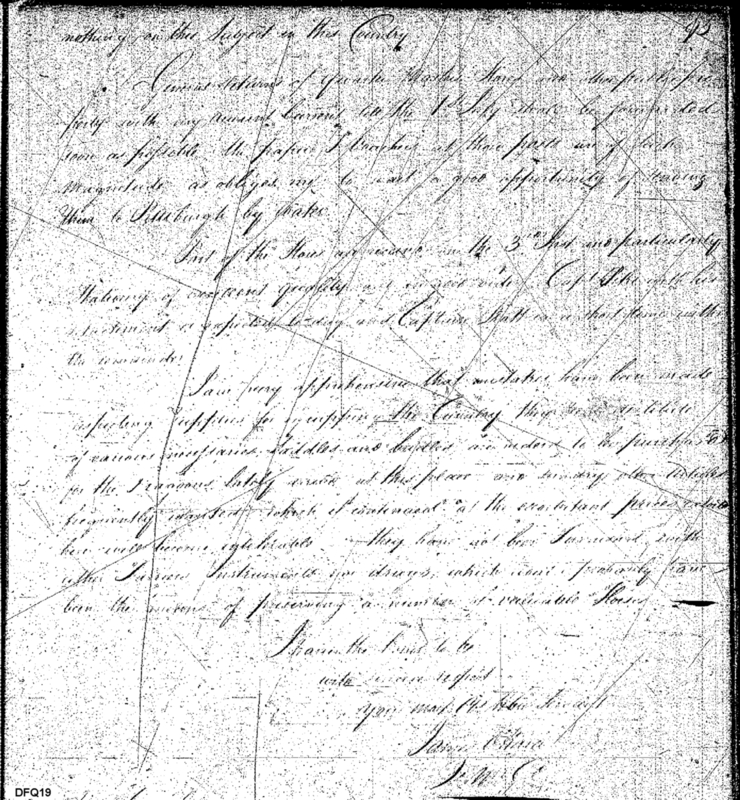 nothing on this Subject in this Country
General Returns of Quarter Masters Stores and other public pro
perty with my account Current, till the 1st July shall be forwarded
soon as possible, the papers & Vouchers at those posts are of such
magnitude as obliges me to wait a good opportunity of sending
them to Pittsburgh by Water
Part of the Stores arrived on the 3rd Inst and particularly
Stationary of excellent quality, and in good order. Capt Pike with his
detachment is expected to day and Captain Pratt in a short time with
the remainder
I am very apprehensive that mistakes have been made
respecting supplies for equipping the Cavalry they were destitute
of various Saddles and bridles in order to be purchased
for the Dragoons lately at this place and sundry other articles
frequently wanted which if continued at the exorbitant prices
here will become intolerable they have not been furnished with
either Farriers Instruments nor drugs, which would probably have
been the means of preserving a number of valuable Horses
I have the honor to be
with sincere respect
Your most Obt Hble Servant
James O'Hara
Q. M. G.
DFQ19